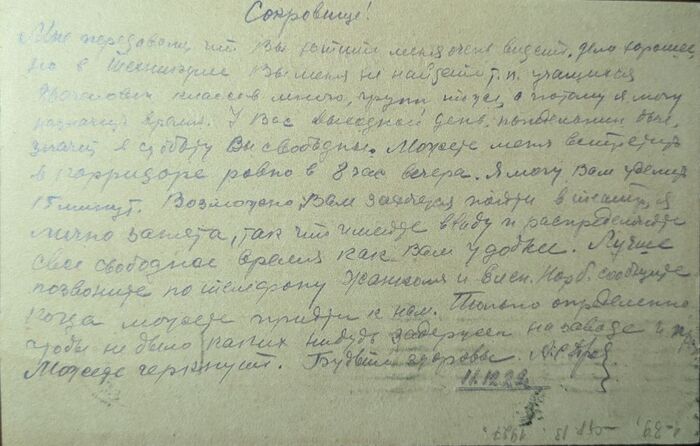 Сокровище!
Мне передавали, что Вы хотите меня очень видеть, дело хорошее,
но в Техникуме Вы меня не найдете, т.к. учащихся
классов много, групп тоже, а потому я могу
назначить время. У Вас выходной день, понедельник
значит в субботу Вы свободны. Можете меня встретить
в корридоре ровно в 8 час вечера. Я могу Вам уделить
15 минут. Возможно, Вам захочется пойти в театр, я
лично занята, так что имейте ввиду и распределяйте
свое свободное время как Вам удобнее. Лучше
позвоните по телефону и сообщите
когда можете придти к нам. Только определенно
чтобы не было каких нибудь на заводе и
Можете черкнуть. Будьте здоровы.
11.12.29